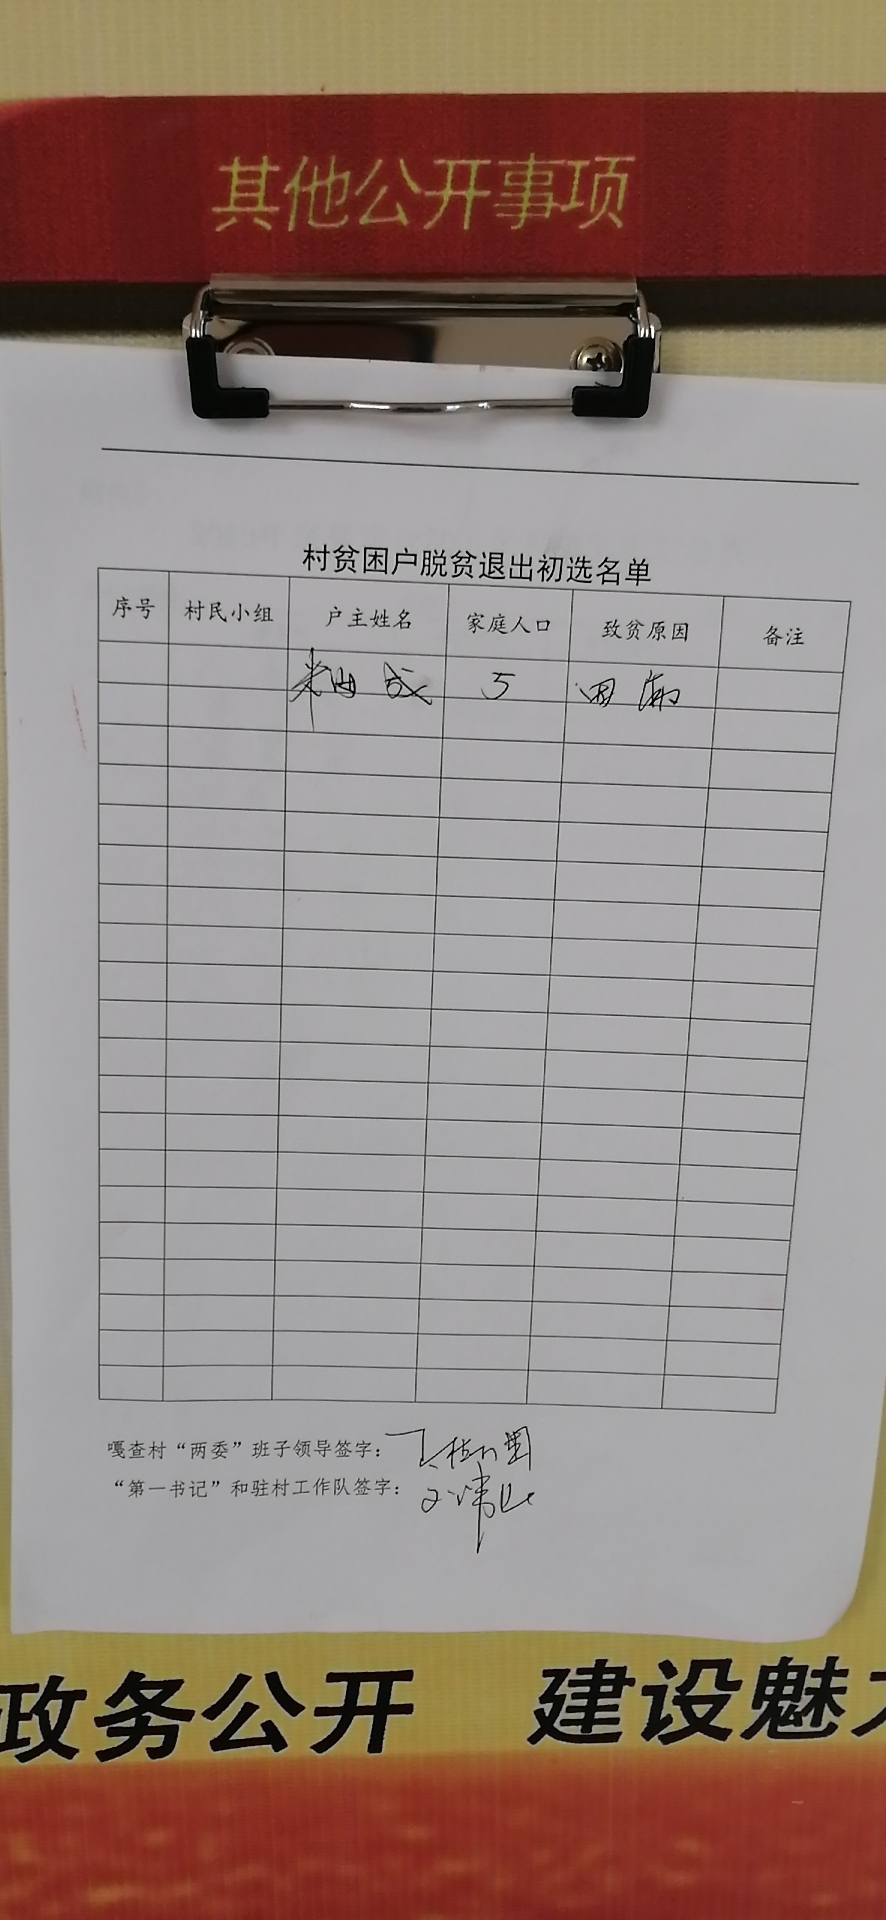 其他公开事项
村贫困户脱贫退出初选名单
序号 村民小组 户主姓名 家庭人口 致贫原因 备注
5 因病
嘎查村“两委”班子领导签字：
“第一书记”和驻村工作队签字：
政务公开 建设魅